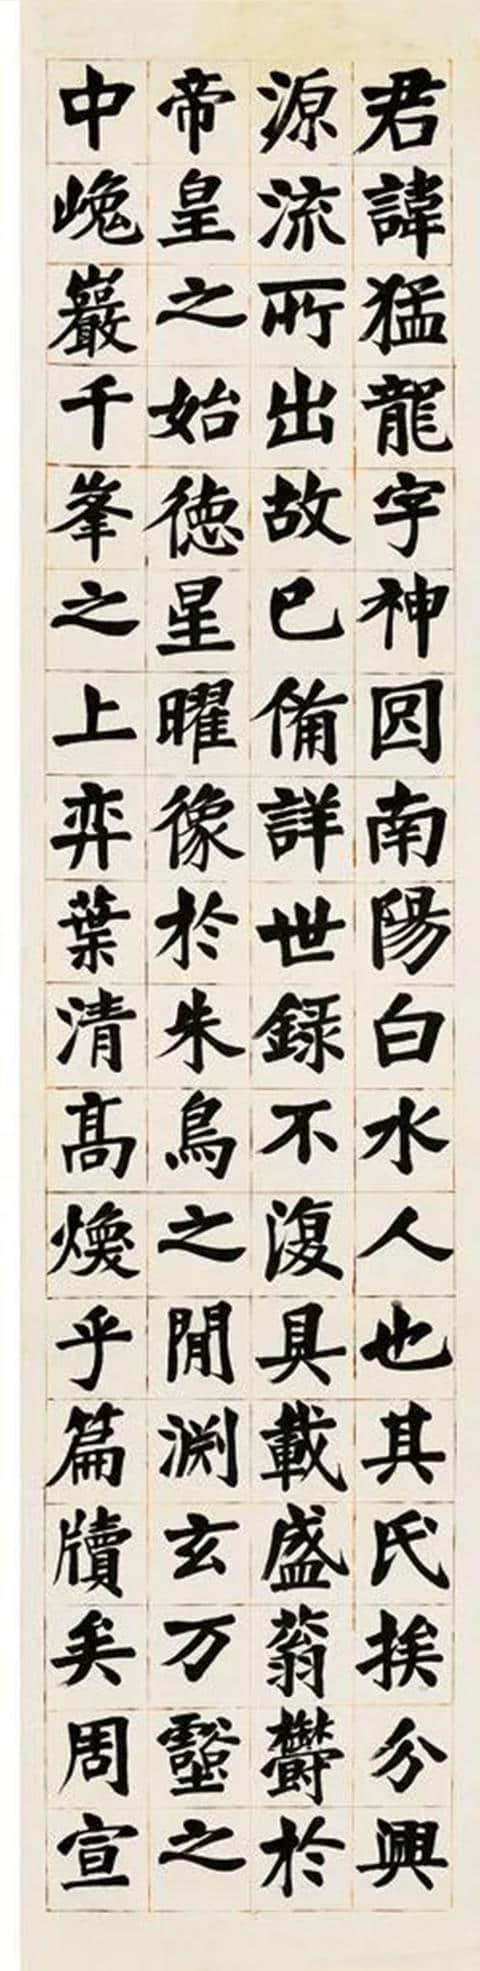 君諱猛龍字神囧南陽白水人也其氏挨分興
源流所出故已俻詳世録不復具載盛蓊欝於
帝皇之始徳星曜像於朱鳥之閒渕玄万壑之
中巉巖千峯之上弈葉清髙煥乎篇牘矣周宣